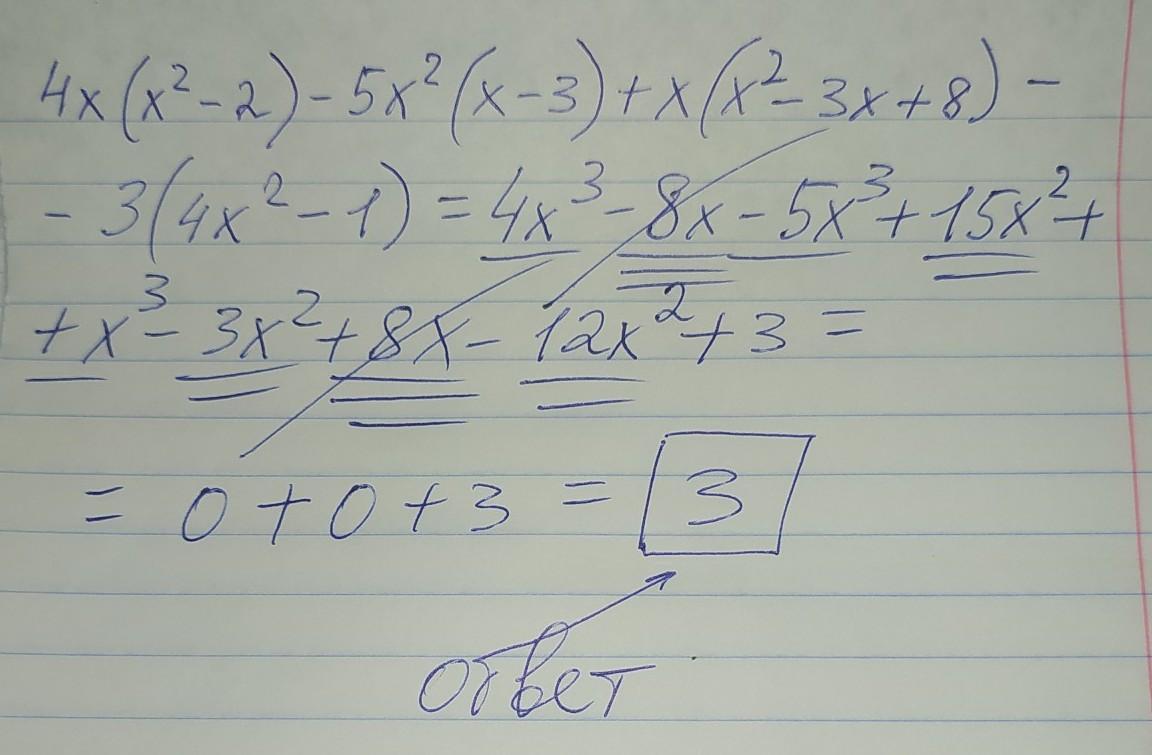 4x(x²-2)-5x²(x-3)+x(x²-3x+8)-
-3(4x²-1)=4x³-8x-5x³+15x²+
+x³-3x²+8x-12x²+3=
=0+0+3=3
ответ